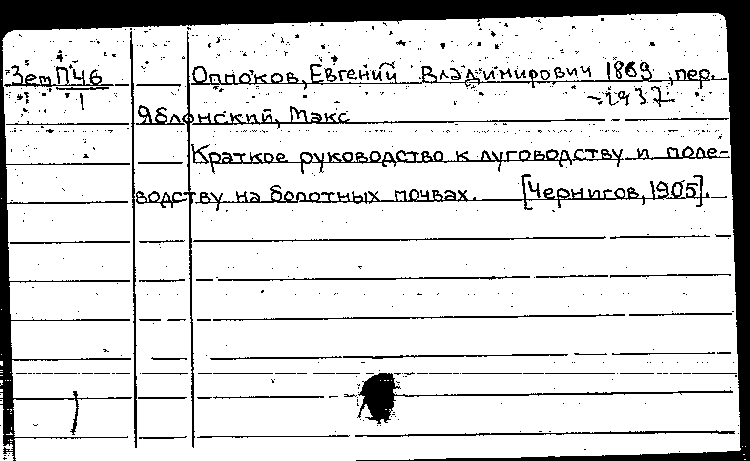 Зем ПЧ6 Оппоков, Евгений Владимирович 1869 , пер.
1 –1937
Яблонский, Макс
Краткое руководство к луговодству и поле-
водству на болотных почвах. [Чернигов, 1905].